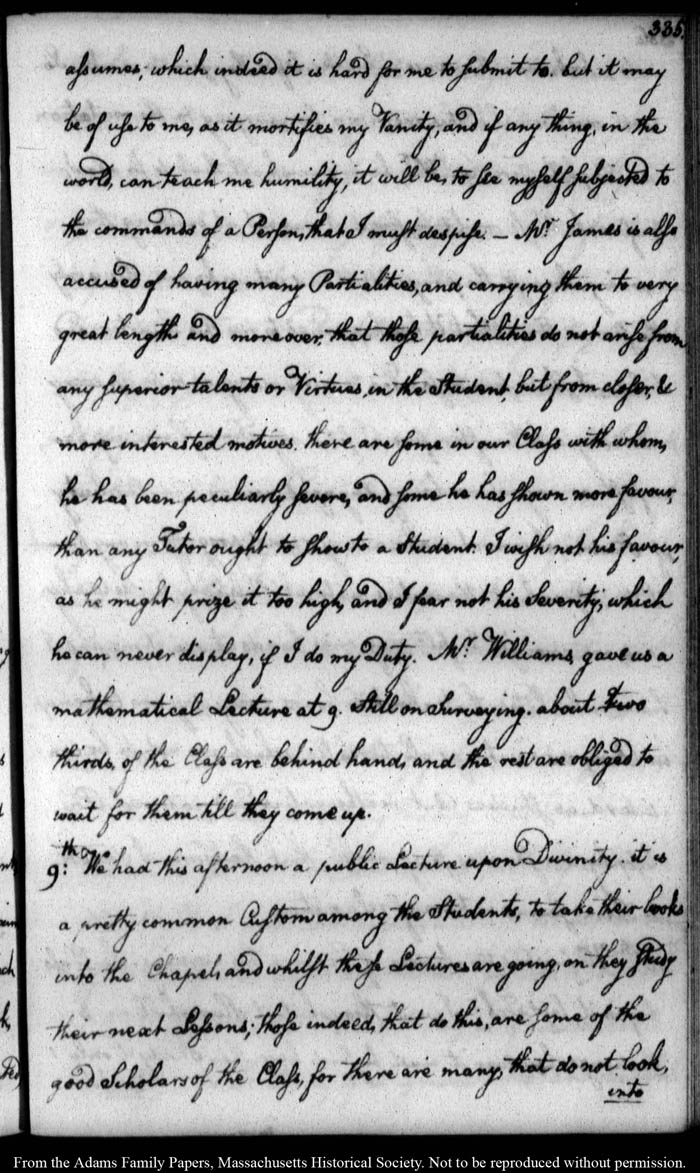 335.
assumes; which indeed it is hard for me to submit to. but it may
be of use to me, as it mortifies my Vanity, and if any thing, in the
world, can teach me humility, it will be, to see myself subjected to
the commands of a Person, that I must despise. — Mr. James is also
accused of having many Partialities, and carrying them to very
great length and moreover, that those partialities do not arise from
any superior talents or Virtues, in the Student, but from closer, &
more interested motives. there are some in our Class with whom,
he has been peculiarly severe, and some he has shown more favour,
than any Tutor ought to show to a Student. I wish not his favour,
as he might prize it too high, and I fear not his Severity, which
he can never display, if I do my Duty. Mr. Williams, gave us a
mathematical Lecture at 9. Still on Surveying. about two
thirds, of the Class are behind hand, and the rest are obliged to
wait for them till they come up.
9:th We had this afternoon a public Lecture upon Divinity. it is
a pretty common Custom among the Students, to take their books
into the Chapel, and whilst these Lectures are going, on they study
their next Lessons; those indeed, that do this, are some of the
good Scholars of the Class, for there are many, that do not look,
into
From the Adams Family Papers, Massachusetts Historical Society. Not to be reproduced without permission